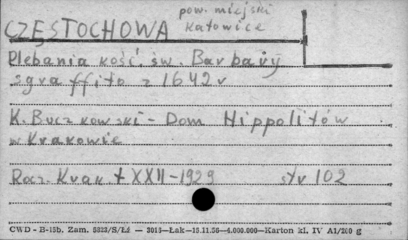 pow. miejski
CZĘSTOCHOWA Katowice
Plebania kość. św. Barbary
sgraffito z 1642 r
K. Buczkowski - Dom Hippolitów
w Krakowie
Rocz. Krak t XXII-1929 str 102
CWD - B-15b, Zam. 5823/S/Ld — 3013—Łak—13.11.56—4.000.000—Karton kl. IV A1/200 g